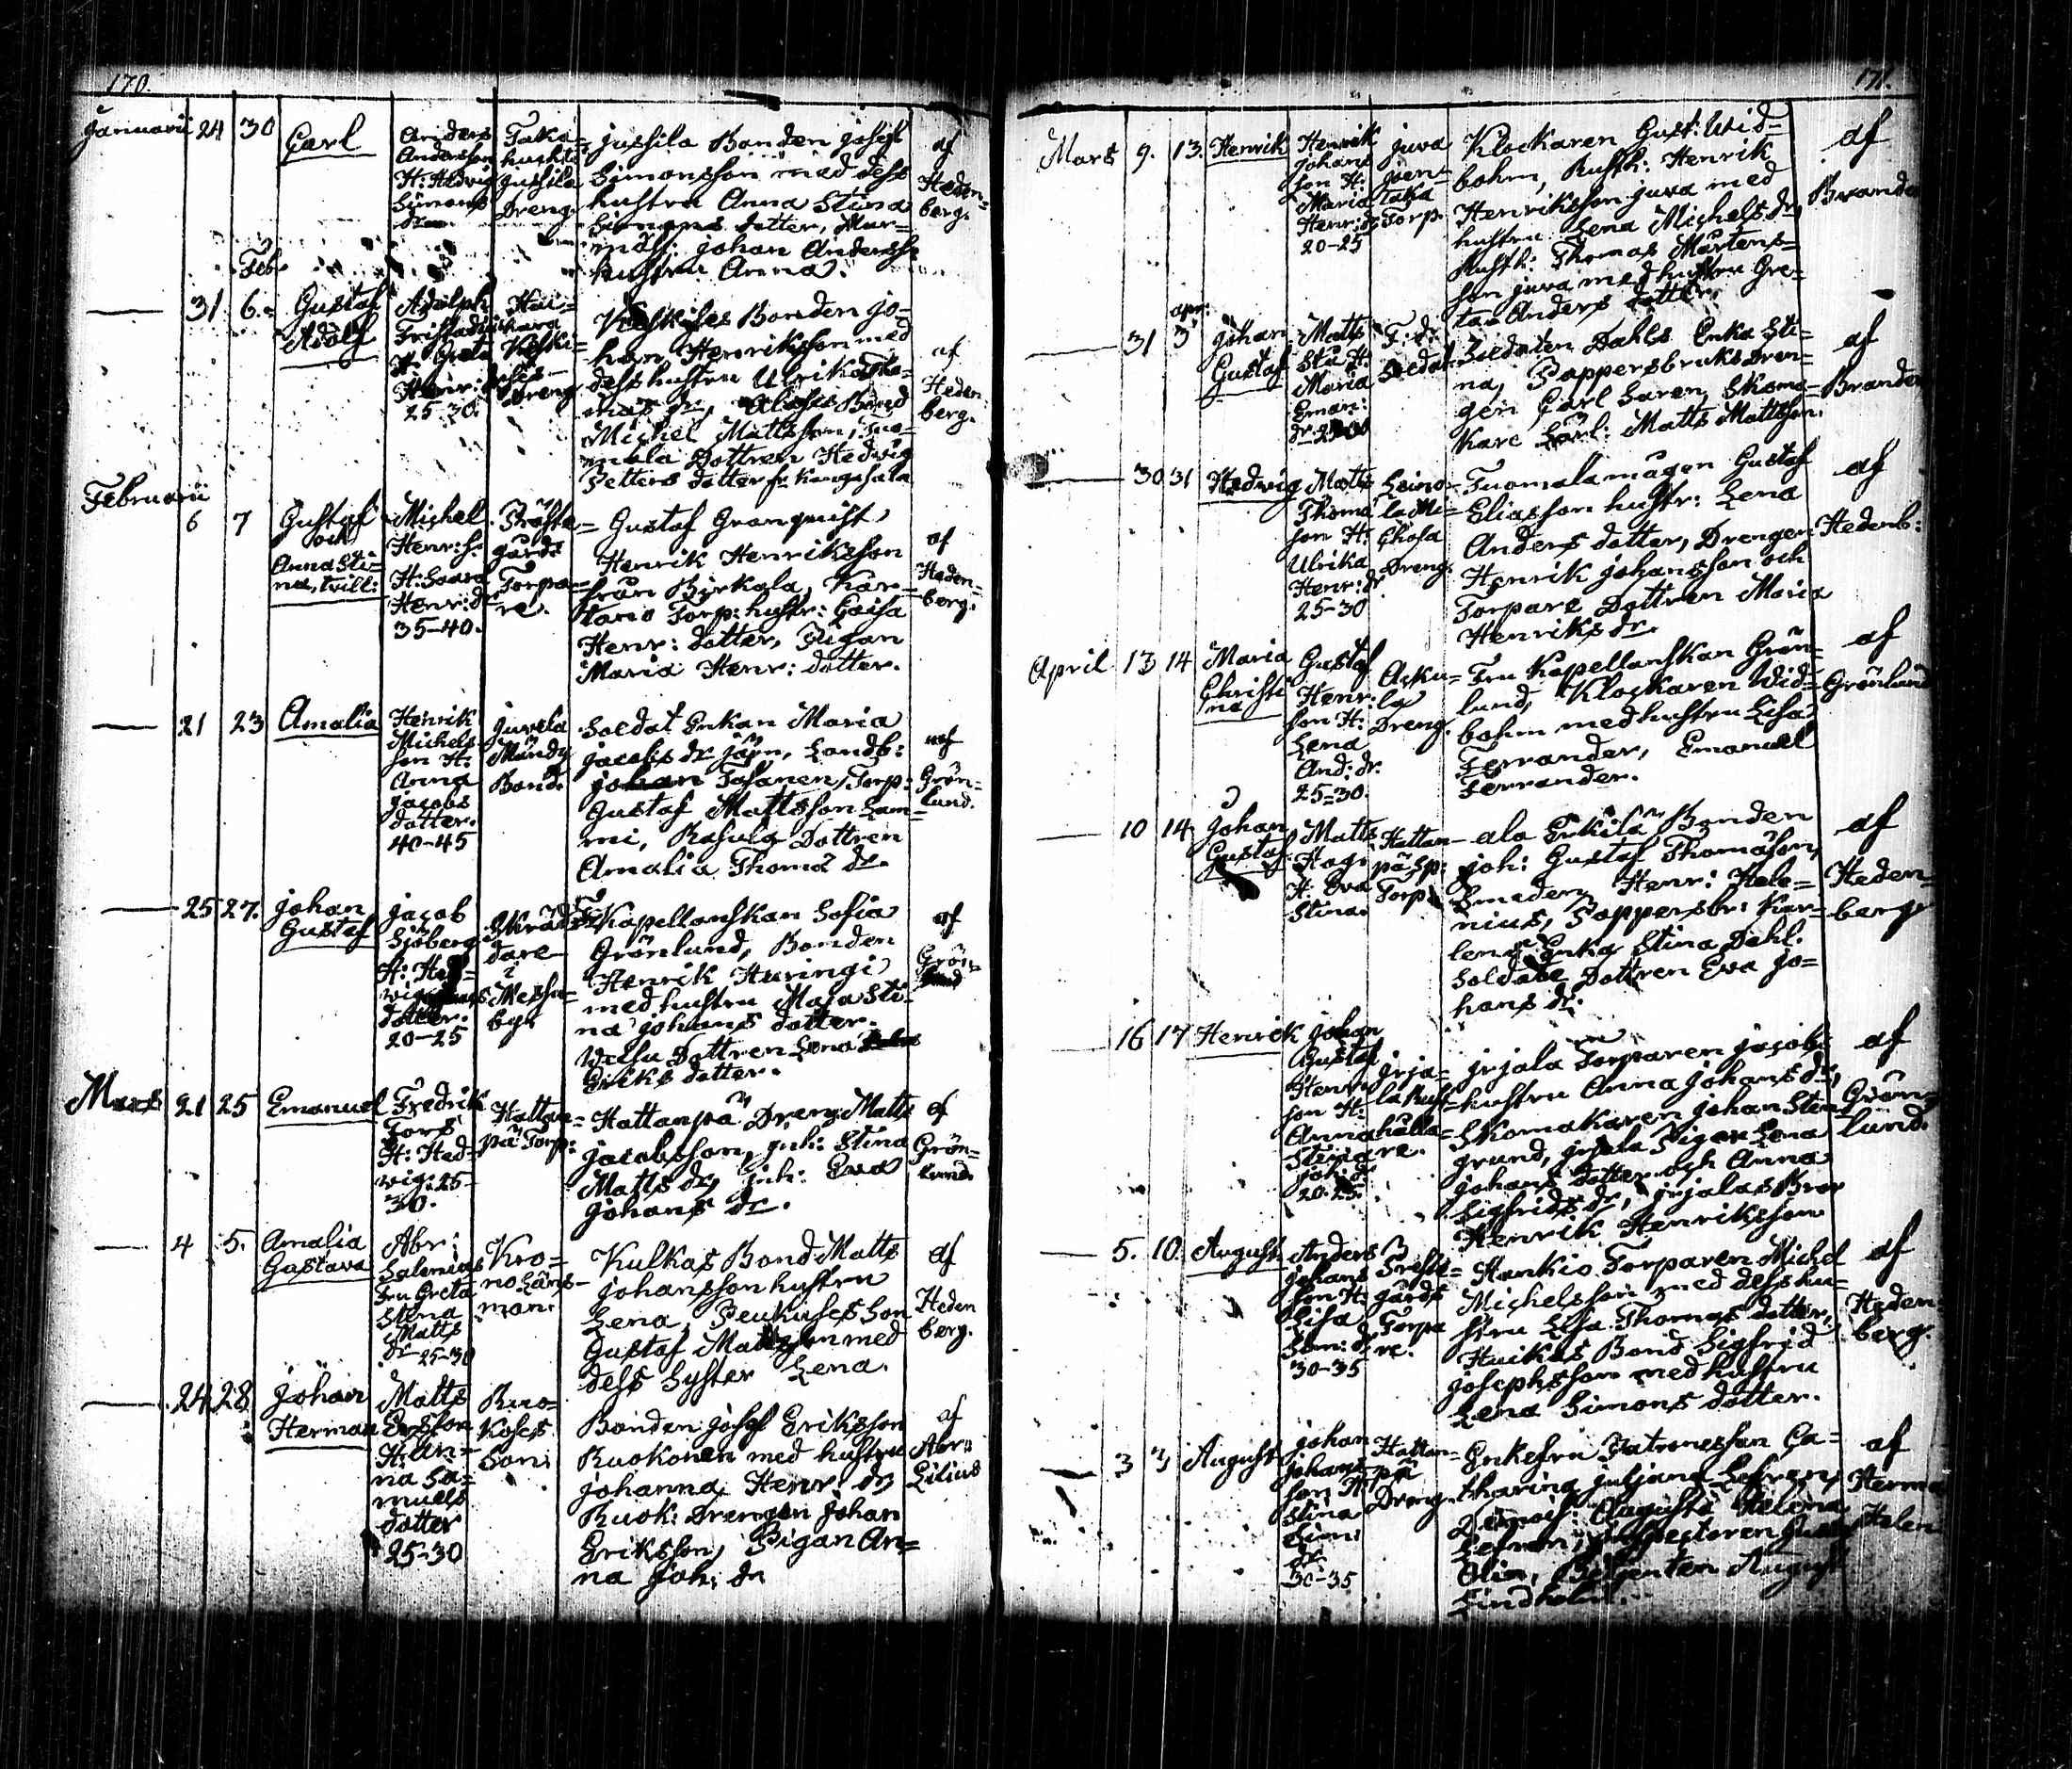 170.
Januarii 24 30 Carl
Anders
Andersson
H: Hedvig
Simons
dr.
Taka-
huchti
Jussila
Dreng.
Jussila Bonden Josef
Simonsson med dess
hustru Anna Stina
Simons dotter, Mur-
mäst: Johan Anderss:
hustru Anna.
af
Heden-
berg.
31 Feb. 6. Gustaf
Adolf
Adolph
H. Greta
Henr: dr
25-30.
Hau-
kara
Keski-
ses
Dreng
Keskises Bonden Jo-
han Henriksson med
dess hustru Ulrika Tho-
mas dr, Bond
Michel Mattsson, Tuo-
mala Dottren Hedvig
Petters dotter fr. Kangasala
af
Heden
berg.
Februarii
6 7 Gustaf
och
Anna Sti-
na, tvill:
Michel
Henr: s.
H: Saara
Henr: dr
35-40.
Präste-
gårds
Torpa-
re.
Gustaf Granquist
Henrik Henriksson
från Birkala, Kar-
tano Torp: hustr: Caisa
Henr: dotter, Pigan
Maria Henr: dotter.
af
Heden-
berg.
21 23 Amalia
Henrik
Michels
son H:
Anna
Jacobs
dotter.
40-45
Juvela
Mändy
Bond.
Soldat Enkan Maria
Jacobs dr Järn, Landb:
Johan Tosanen, Torp:
Gustaf Mattsson Lam-
mi, Rasula Dottren
Amalia Thoma dr.
af
Grön-
lund.
25 27. Johan
Gustaf
Jacob
Sjöberg
H: Hed-
vig
dotter.
20-25
Skräd-
dare
i
Messu-
by.
Fr Kapellanskan Sofia
Grönlund, Bonden
Henrik Huringi
med hustru Maja Sti-
na Johans dotter.
Dottren Lena
Eriks dotter.
af
Grön-
lund
Mars 21 25 Emanuel
Fredrik
Fors
H: Hed-
vig. 25-
30.
Hattan-
pä Torp:
Hattanpä Dreng: Matts
Jacobsson, Inh: Stina
Matts dr, Inh: Eva
Johans dr.
af
Grön-
lund.
4 5. Amalia
Gustava
Abr:
Salenius
Fru Greta
Stina
Matts
dr 25-30
Kro-
no Läns-
man.
Kulkas Bond Matts
Johansson hustru
Lena, Son
Gustaf Mattsson med
dess Syster Lena.
af
Heden
berg.
24 28 Johan
Herman
Matts
Ersson
H: An-
na Sa-
muels
dotter
25-30
Ruo-
koses
Son:
Bonden Josef Eriksson
Ruokonen med hustru
Johanna Henr: dr
Ruok: Drengen Johan
Eriksson, Pigan An-
na Joh: dr
af
Abr:
Lilius
171.
Mars 9. 13. Henrik
Henrik
Johans
son H:
Maria
Henr: dr
20-25
Juva
Joen-
Taka
Torp.
Klockaren Gust: Wid-
bohm, Rusth: Henrik
Henriksson Juva med
hustru Lena Michels dr,
Rusth: Thomas Mårtens-
son Juva med hustru Gre-
ta Anders dotter.
af
Brander
31 apr. 3 Johan
Gustaf
Matts
H:
Maria
Eman:
dr
F: d:
Soldat
Soldaten Dahls Enka Sti-
na, Pappersbruksdren-
gen Carl Saren, Skoma-
kare Lärl: Matts Mattsson.
af
Brander
30 31 Hedvig
Matts
Thoma
son H:
Ulrika
Henr: dr.
25-30
Heino-
la Mi-
chola
Dreng.
Tuomala mågen Gustaf
Eliasson hustr: Lena
Anders dotter, Drengen
Henrik Johansson och
Torpare Dottren Maria
Henriks dr.
af
Hedenb:
April 13 14 Maria
Christi
na
Gustaf
Henr:
son H:
Lena
And: dr.
25-30.
Acku-
la
Dreng.
Fru Kapellanskan Grön-
lund, Klockaren Wid-
bohm med hustru Lisa
Ferrander, Emanuel
Ferrander.
af
Grönlund
10 14 Johan
Gustaf
Matts
Hag:
H. Eva
Stina.
Hattan-
pä Sp:
Torp.
ala Erkilä Bonden
Joh: Gustaf Thomasson,
Smeden Henr: Hele-
nius, Pappersbr: Kar-
lens Enka Stina Dahl.
Soldate Dottren Eva Jo-
hans dr.
af
Heden-
berg
16 17 Henrik
Johan
Gustaf
Henr:
son H:
Anna
Stina
Joh: dr
20-25.
Irja-
la Rust-
hålla-
re.
Irjala Torparen Jacobs
hustru Anna Johans dr,
Skomakaren Johan Sten-
grund, Irjala Pigan Lena
Johans dotter och Anna
Sigfrids dr, Irjalas Bror
Henrik Henriksson
af
Grön-
lund.
5. 10. August
Anders
Johans
son H:
Lisa
Sim: dr
30-35
Preste-
gårds
Torpa
re.
Hankio Torparen Michel
Michelsson med dess hu-
stru Lisa Thomas dotter,
Huikas Bond Sigfrid
Josephsson med hustru
Lena Simons dotter.
af
Heden-
berg.
3 3 August
Johan
Johans
son H:
Stina
Sim:
dr
30-35
Hattan-
pä
Dreng.
Enkefru Patronessan Ca-
tharina Juljana Lefren,
Demois: Augusta Helena
Lefren, Inspectoren
Olin, Betjenten August
Lindholm.
af
Herm
Helen